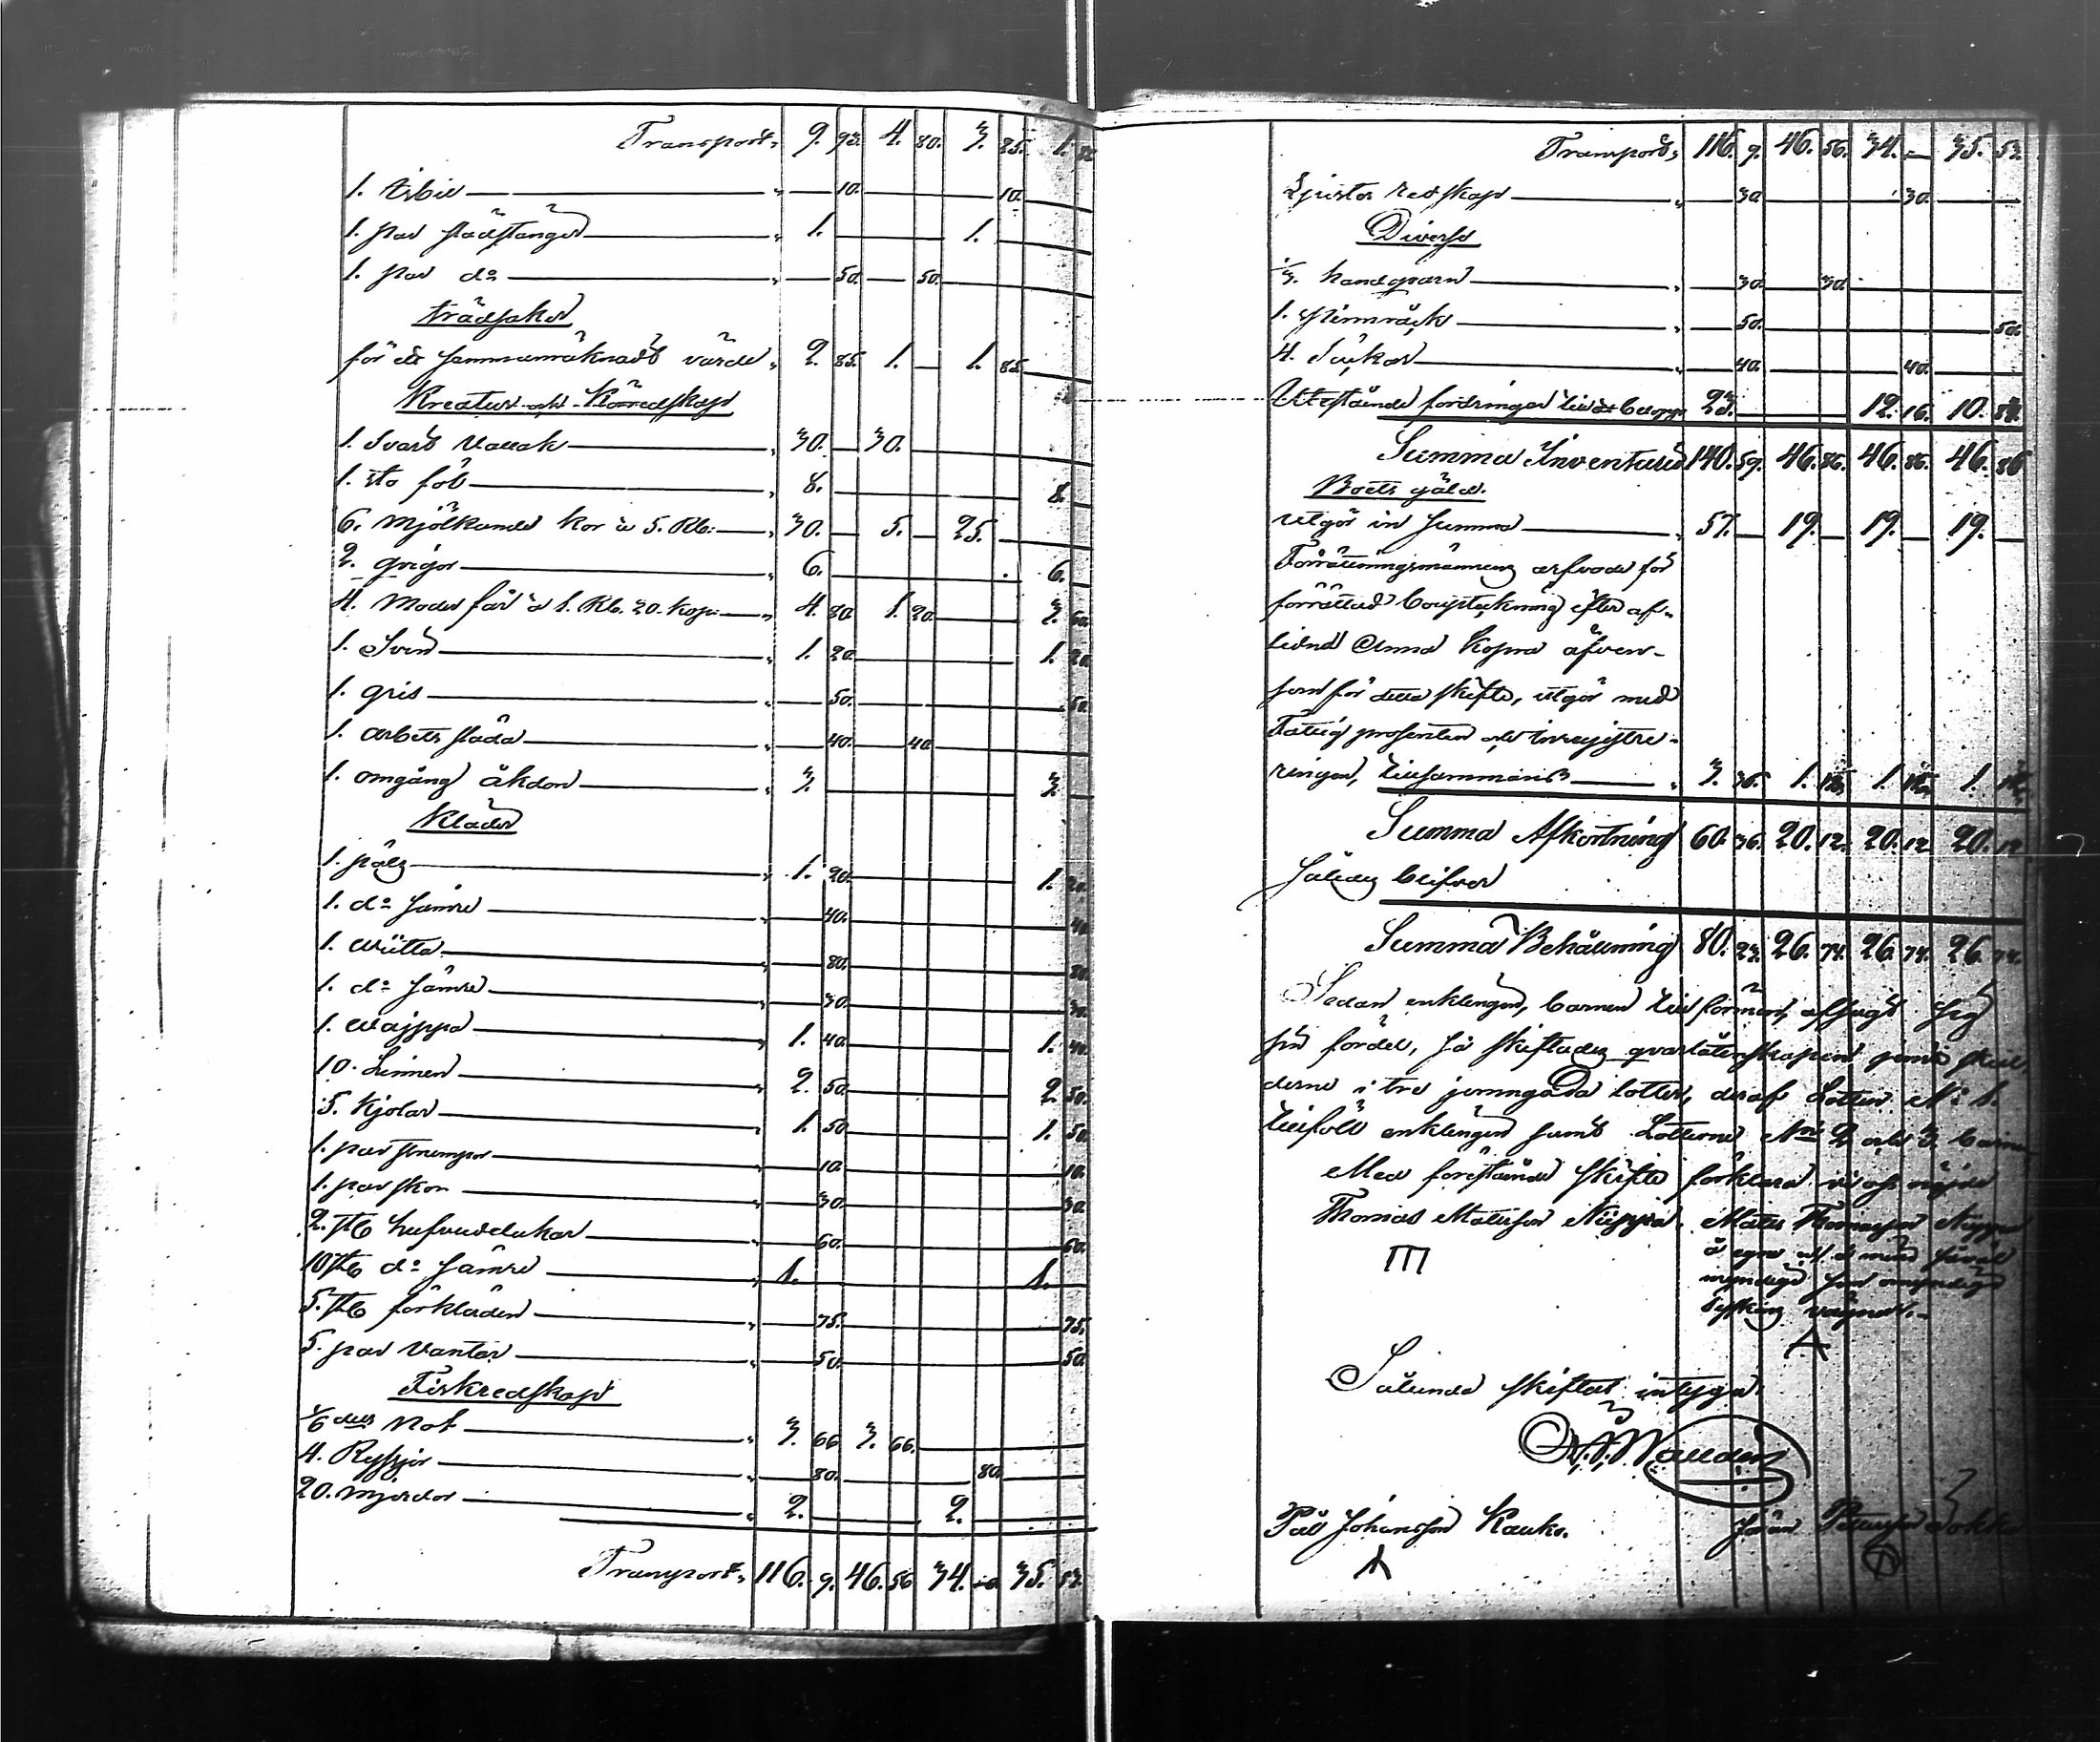 Transport, 9. 93. 4. 80. 3. 25. 1. 88
1. isbil 10. 10.
1. par slädstänger 1. 1.
1. par do 50. 50.
trädsaker
för ett sammanräknadt värde 2. 85. 1. 1. 85.
Kreatur och Körredskap
1. Svart Vallak 30. 30.
1. sto föl 8. 8.
6. mjölkande kor à 5. Rb. 30. 5. 25.
2. qvigor 6. 6.
4. moder får à 1. Rb. 20. kop. 4. 80. 1. 20. 3. 60.
1. Svin 1. 20. 1. 20.
1. gris 50. 50.
1. arbets släda 40. 40.
1. omgång åkdon 3. 3.
Kläder
1. päls 1. 20. 1. 20.
1. do sämre 40. 40.
1. 80. 80.
1. do sämre 30. 30.
1. 1. 40. 1. 40.
10. Linnen 2. 50. 2. 50.
5. Kjolar 1. 50. 1. 50.
1. par strumpor 10. 10.
1. par skor 30. 30.
2. st. hufvuddukar 60. 60.
10 st. do sämre 1. 1.
5. st. förkläden 75. 75.
5. par vantar 50. 50.
Fiskredskap
1/6 dels Not 3. 66. 3. 66.
4. Ryssjor 80. 80.
20. mjärdor 2. 2.
Transport, 116. 9. 46. 56 34. 35. 53.
Transport, 116. 9. 46. 56. 34. — 35. 53.
Ljuster redskap 30. 30.
Diverse
1/3. handqvarn 30. 30.
1. spinnråck 50. 50.
4. Säckar 40. 40.
Utestående fordringar till ett belopp 23. 12. 16. 10. 83.
Summa Inventarium 140. 59. 46. 86. 46. 86. 46. 86
Boets gäld.
utgör in summa 57. 19. 19. 19.
Förrättningsmännens arfvode för
förrättad bouptekning efter af-
lidna Anna Kopra äfven-
som för detta skifte, utgör med
Fattig prosenten och inregistre-
ringen, tillsammans 3. 36. 1. 12. 1. 12. 1. 12.
Summa Afkortning 60. 36. 20. 12. 20. 12 20. 12
Således blifver
Summa Behållning 80. 23. 26. 74. 26. 74. 26. 74.
Sedan enklingen, barnen till förmån, afsagt sig
sin fördel, så skiftades qvarlåtenskapen jemte skul-
derne i tre jemngoda lotter, deraf Lotten No 1.
tillföll enklingen samt Lotterne Nris 2 och 3 barnen
Med förestående skifte förklara vi oss nöjde
Thomas Matsson Mats Thomasson
å egna och med
myndige samt omyndige
syskons vägnar.
Sålunda skiftat intyga:
Pål Johansson Kauko. Jöran